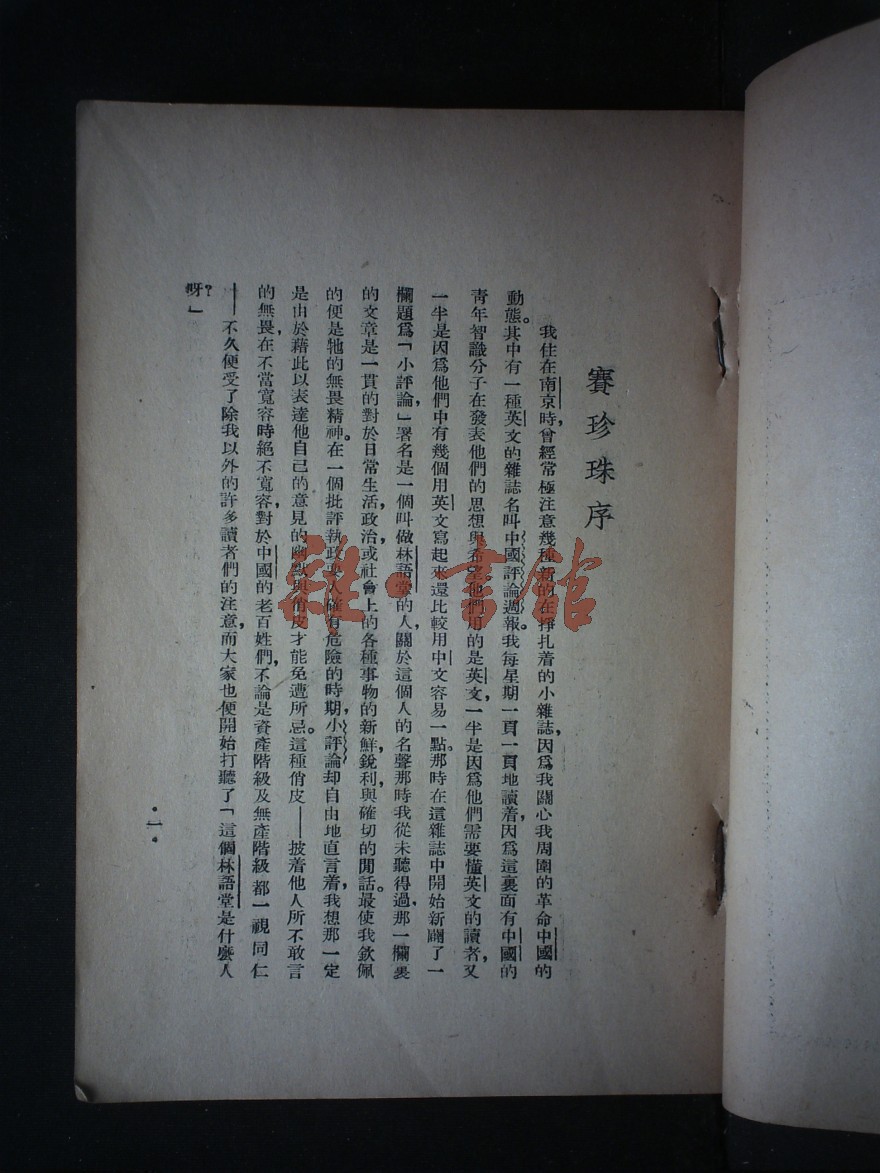 賽珍珠序
我住在南京時，曾經常極注意幾種新的在掙扎着的小雜誌，因爲我關心我周圍的革命中國的
動態。其中有一種英文的雜誌名叫中國評論週報。我每星期一頁一頁地讀着，因爲這裏面有中國的
青年智識分子在發表他們的思想與希望，他們用的是英文，一半是因爲他們需要懂英文的讀者，又
一半是因爲他們中有幾個用英文寫起來還比較用中文容易一點。那時在這雜誌中開始新闢了一
欄題爲「小評論，」署名是一個叫做林語堂的人，關於這個人的名聲那時我從未聽得過，那一欄裏
的文章是一貫的對於日常生活，政治，或社會上的各種事物的新鮮，銳利，與確切的閒話。最使我欽佩
的便是牠的無畏精神。在一個批評執政要人確有危險的時期，小評論却自由地直言着，我想那一定
是由於藉此以表達他自己的意見的幽默與俏皮才能免遭所忌。這種俏皮——披着他人所不敢言
的無畏，在不當寬容時絕不寬容，對於中國的老百姓們，不論是資產階級及無產階級都一視同仁
——不久便受了除我以外的許多讀者們的注意，而大家也便開始打聽了「這個林語堂是什麼人
呀？」
·一·
雜·書館